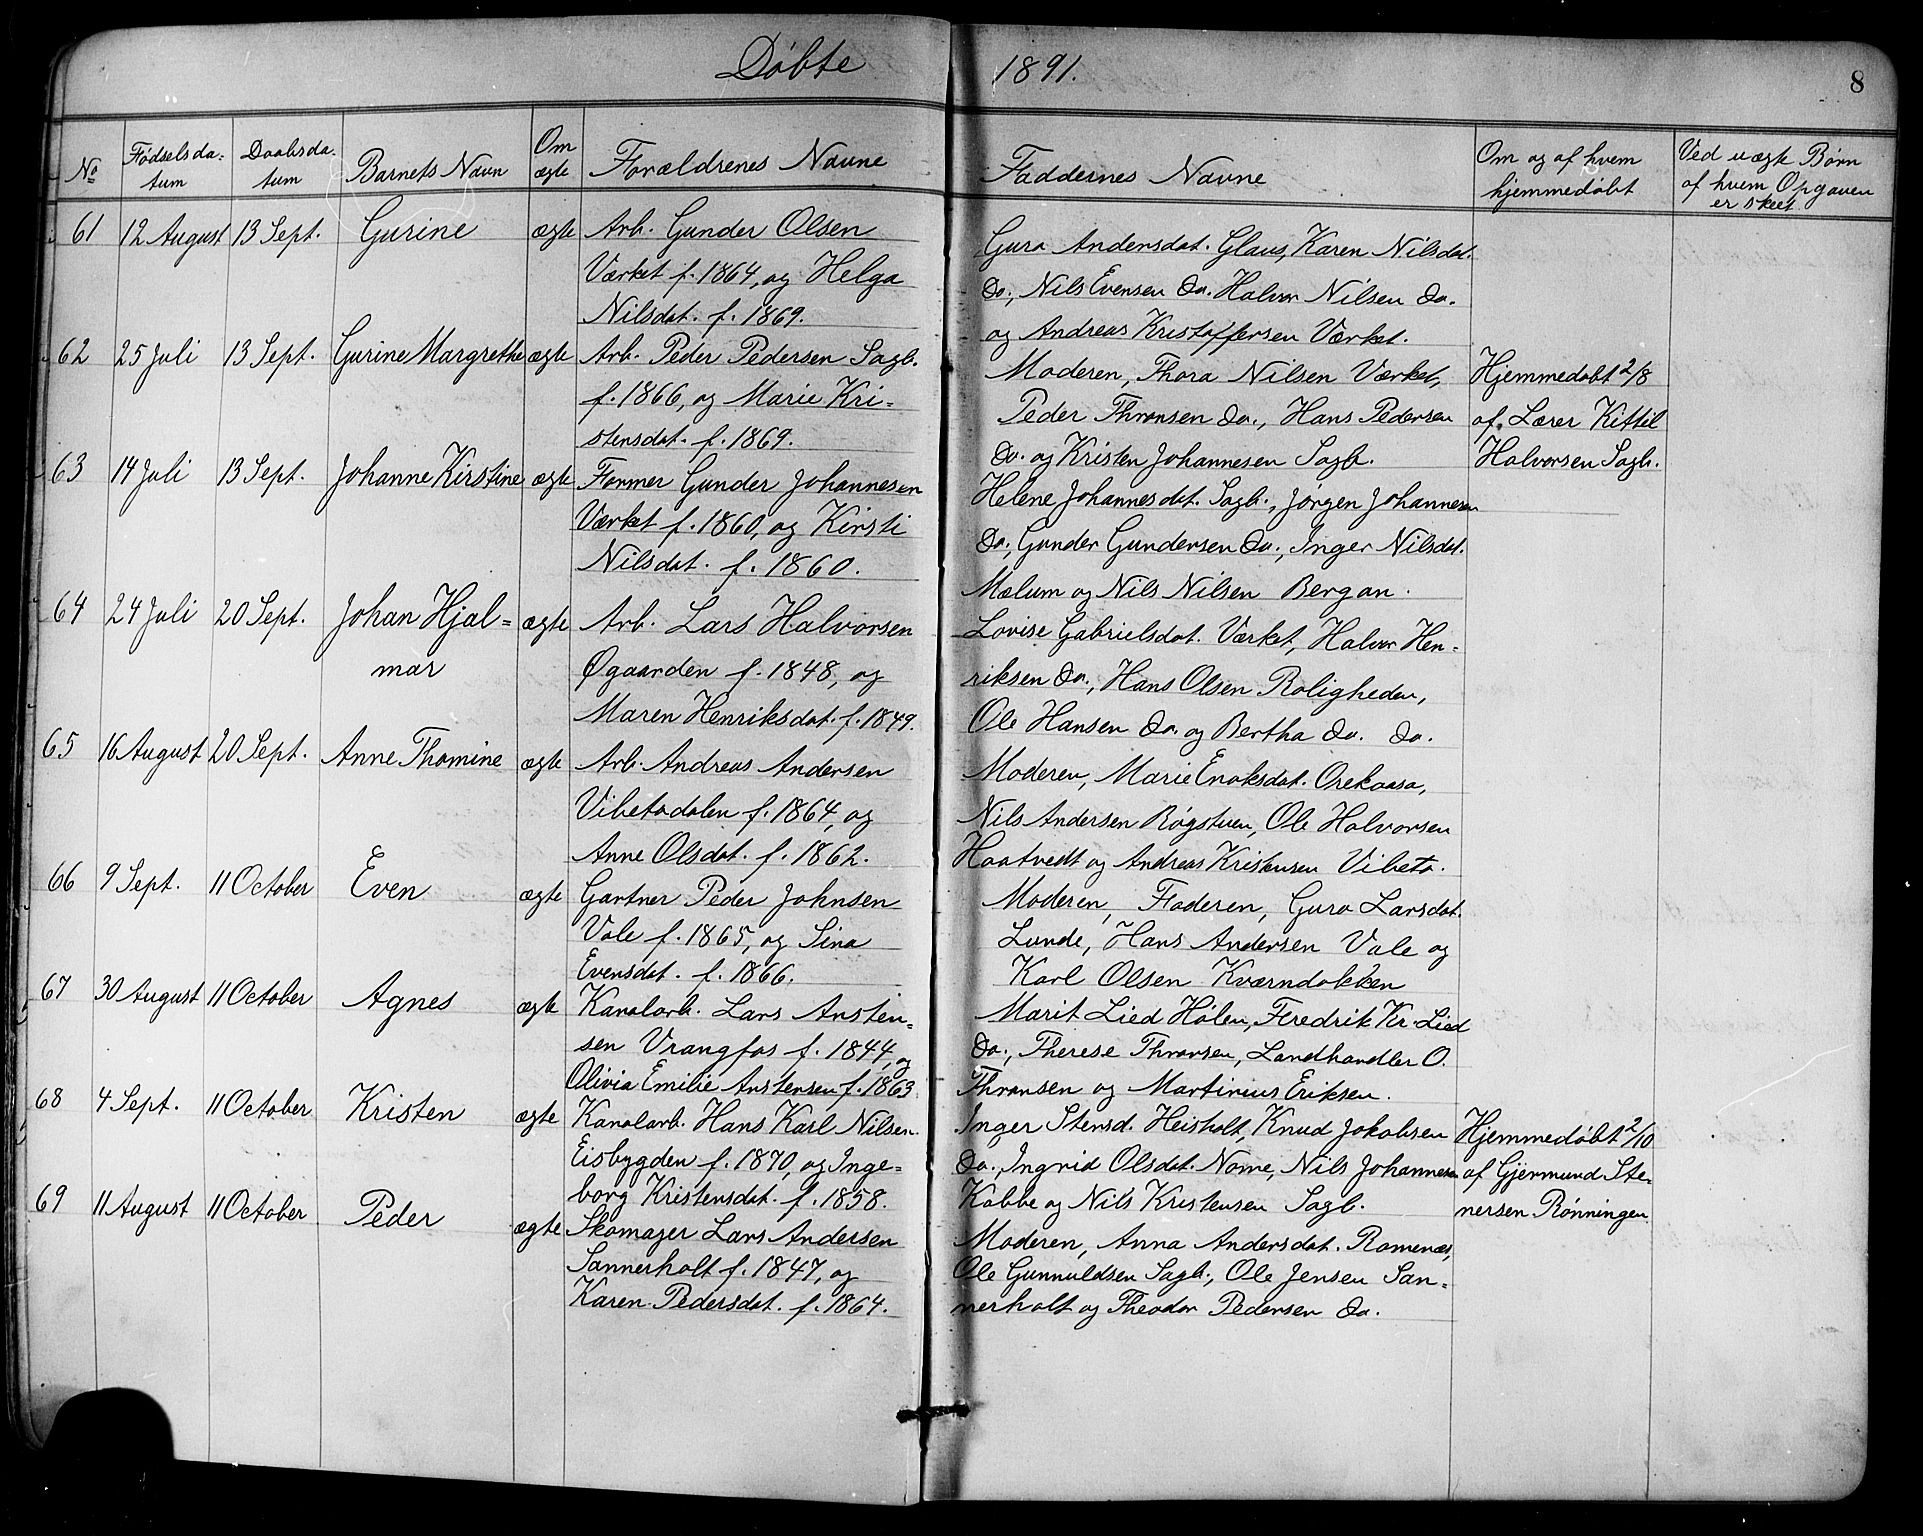 Døbte 1891. 8
No Fødselsda- Daabsda- Barnets Navn Om Forældrenes Navne Faddernes Navne Om og af hvem Ved uægte Børn
tum tum ægte hjemmedøbt af hvem Opgaven
er skeet
61 12 August 13 Sept. Gurine ægte Arb. Gunder Olsen
Værket f. 1864, og Helga
Nilsdat. f. 1869.
Guro Andersdat. Glaus, Karen Nilsdat.
Do., Nils Evensen Do. Halvor Nilsen Do.
og Andreas Kristoffersen Værket.
62 25 Juli 13 Sept. Gurine Margrethe ægte Arb. Peder Pedersen Sagb.
f. 1866, og Marie Kri-
stensdat. f. 1869.
Moderen, Thora Nilsen Værket,
Peder Thronsen Do., Hans Pedersen
Do. og Kristen Johannesen Sagb.
Hjemmedøbt 2/8
af Lærer Kittil
Halvorsen Sagb.
63 14 Juli 13 Sept. Johanne Kirstine ægte Former Gunder Johannesen
Værket f. 1860, og Kirsti
Nilsdat. f. 1860.
Helene Johannesdat. Sagb., Jørgen Johannesen
Do., Gunder Gundersen Do., Inger Nilsdat.
Mælum og Nils Nilsen Bergan.
64 24 Juli 20 Sept. Johan Hjal- ægte Arb. Lars Halvorsen
mar Øgaarden f. 1848, og
Maren Henriksdat. f. 1849.
Lovise Gabrielsdat. Værket, Halvor Hen-
riksen Do., Hans Olsen Roligheden,
Ole Hansen Do. og Bertha Do. Do.
65 16 August 20 Sept. Anne Thomine ægte Arb. Andreas Andersen
Vibetodalen f. 1864, og
Anne Olsdat. f. 1862.
Moderen, Marie Enoksdat. Orekaasa,
Nils Andersen Røgstuen, Ole Halvorsen
Haatvedt og Andreas Kristensen Vibeto.
66 9 Sept. 11 October Even ægte Gartner Peder Johnsen
Vale f. 1865, og Sina
Evensdat. f. 1866.
Moderen, Faderen, Guro Larsdat.
Lunde, Hans Andersen Vale og
Karl Olsen Kværndokken
67 30 August 11 October Agnes ægte Kanalarb. Lars Ansten-
sen Vrangfos f. 1844, og
Olivia Emilie Anstensen f. 1863
Marit Lied Hölen, Fredrik Kr. Lied
Do., Therese Thronsen, Landhandler O.
Thronsen og Martinius Eriksen.
68 4 Sept. 11 October Kristen ægte Kanalarb. Hans Karl Nilsen
Eisbygden f. 1870, og Inge-
borg Kristensdat. f. 1858.
Inger Stensd. Heisholt, Knud Jakobsen
Do., Ingrid Olsdat. Nome, Nils Johannesen
Kabbe og Nils Kristensen Sagb.
Hjemmedøbt 2/10
af Gjermund Ste-
nersen Rønningen
69 11 August 11 October Peder ægte Skomager Lars Andersen
Sannerholt f. 1847, og
Karen Pedersdat. f. 1864.
Moderen, Anna Andersdat. Romenæs,
Ole Gunnuldsen Sagb., Ole Jensen San-
nerholt og Theodor Pedersen Do.